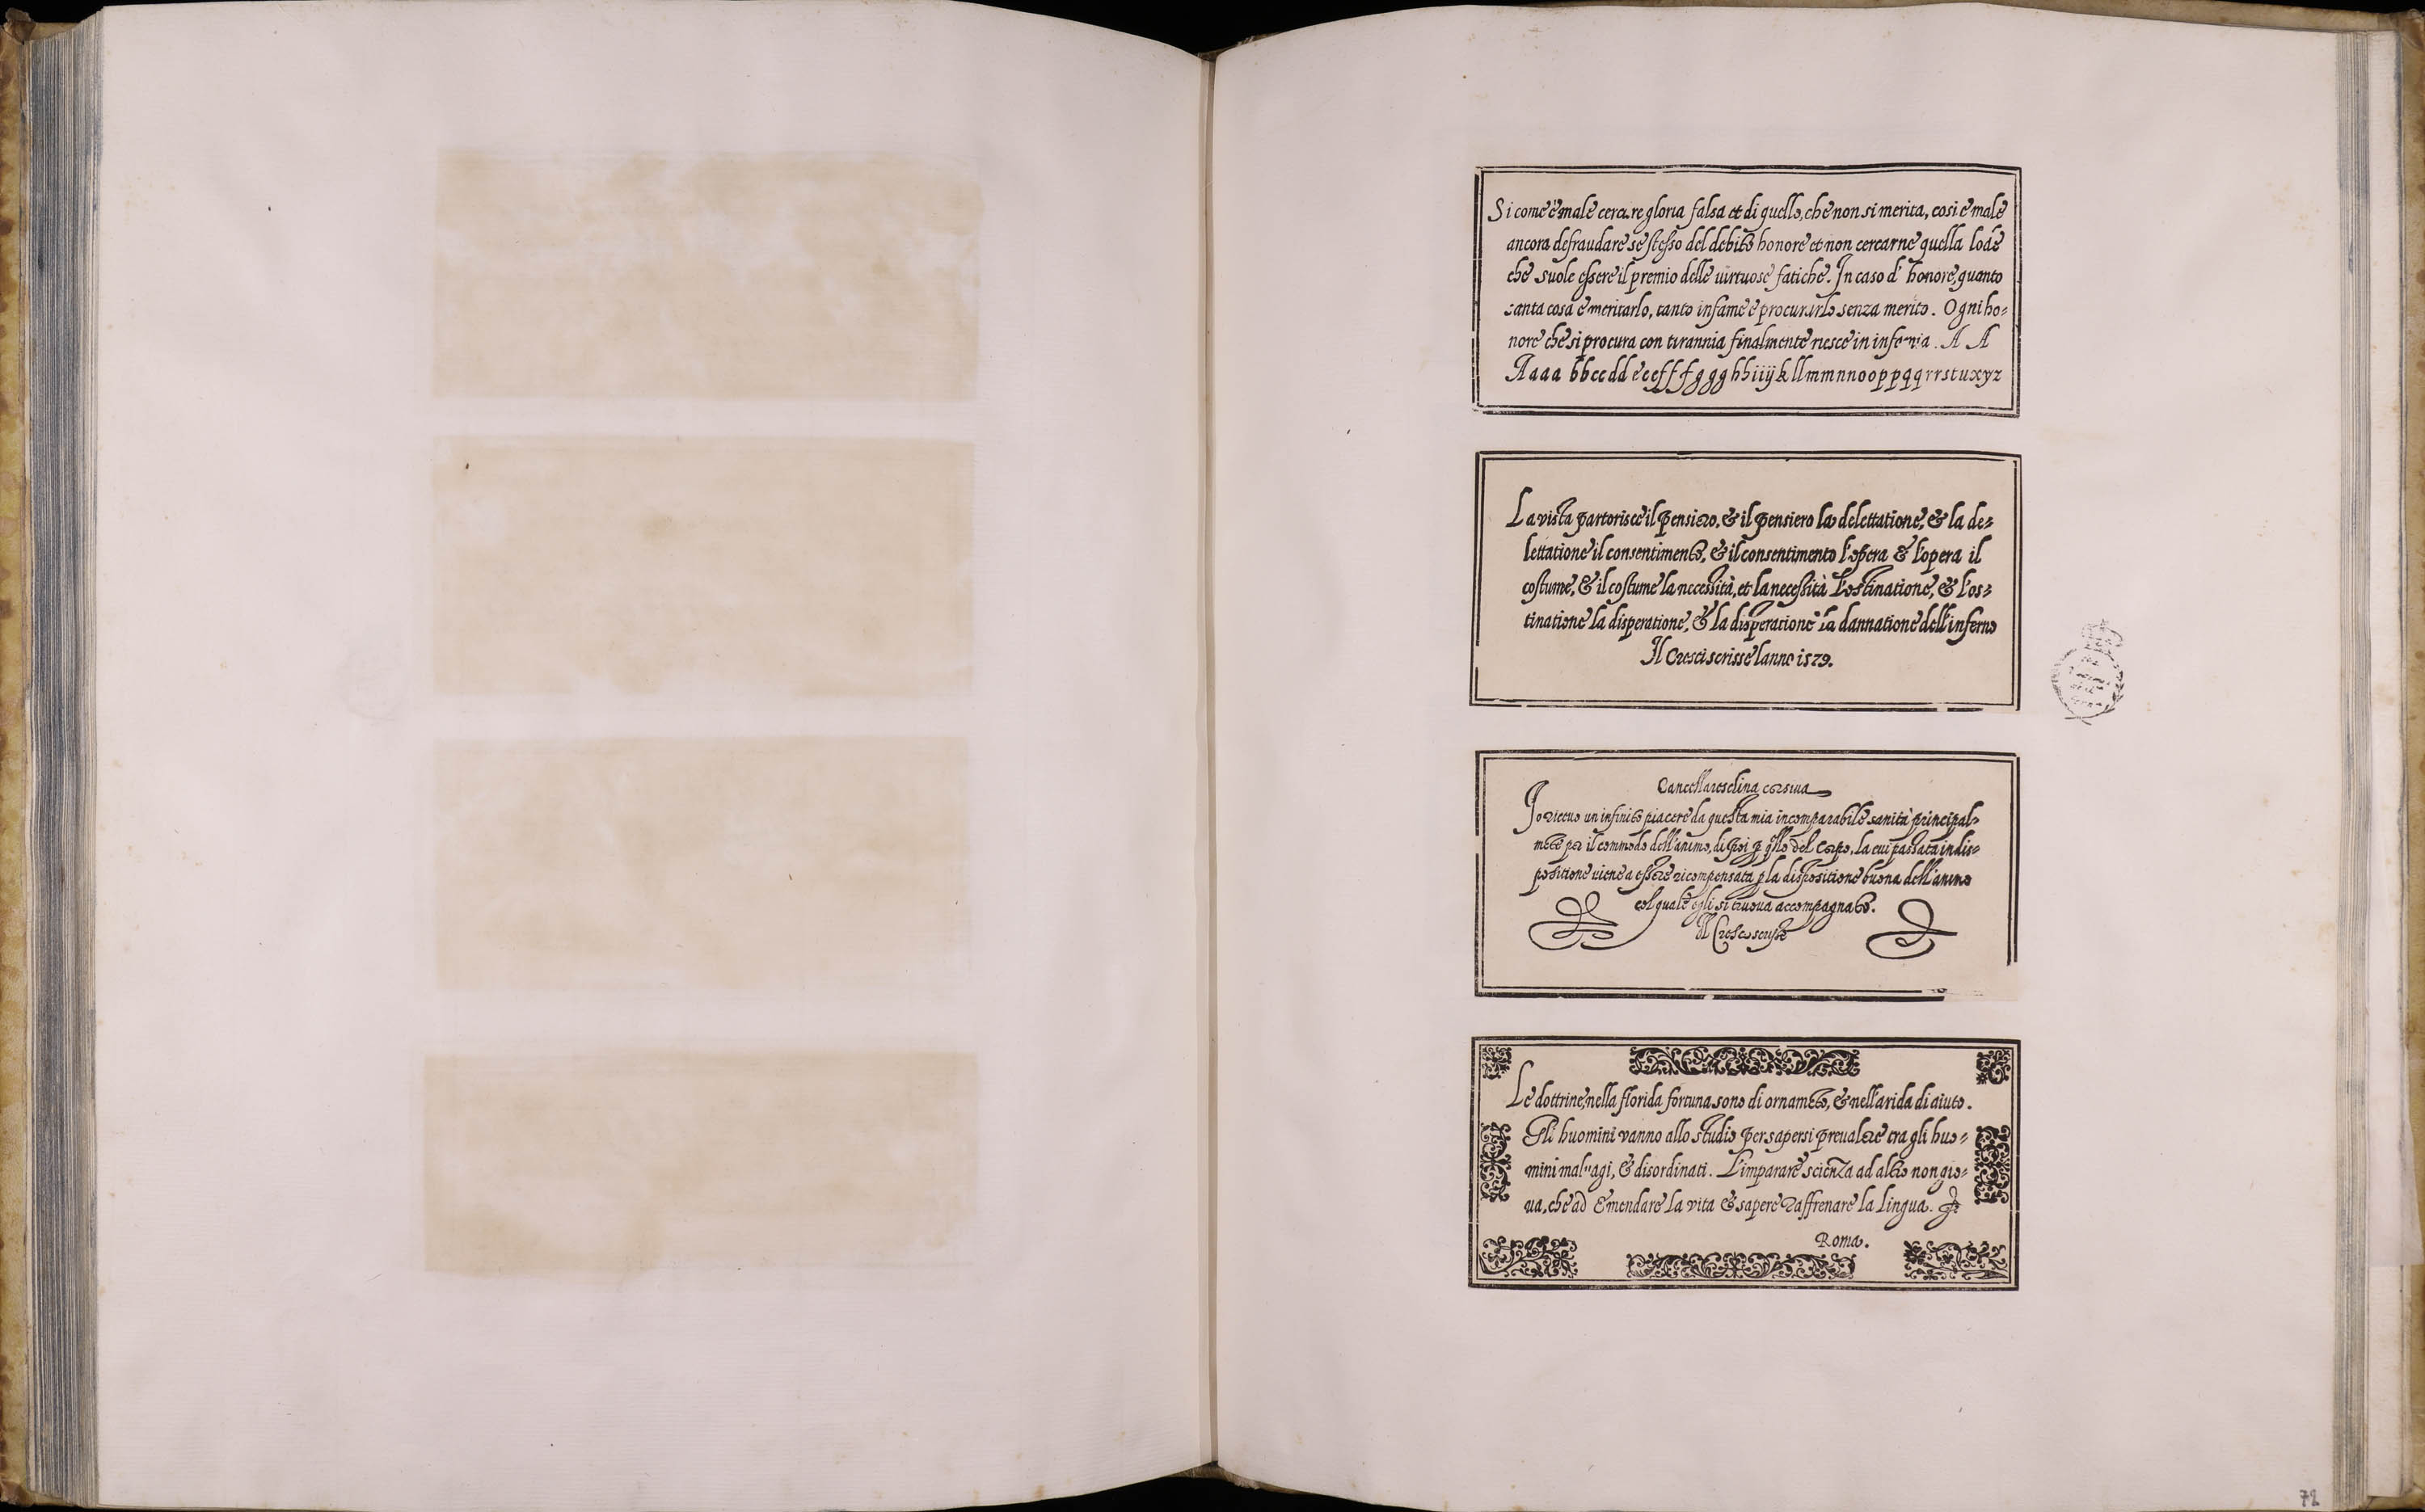 Si come è male cercare gloria falsa et di quello, che non si merita, cosi è male
ancora defraudare se stesso del debito honore et non cercarne quella lode
che suole essere il premio delle uirtuose fatiche. In caso d' honore, quanto
santa cosa è meritarlo, tanto infame è procurarlo senza merito. Ogni ho=
nore che si procura con tirannia finalmente riesce in infamia. A A
Aaaa bbccdd eeefffggghhiiijkllmmnnooppqqrrstuxyz
La vista partorisce il pensiero, & il pensiero la delettatione, & la de=
lettatione il consentimento, & il consentimento l'opera & l'opera il
costume, & il costume la necessità, et la necessità l'ostinatione, & l'os=
tinatione la disperatione, & la disperatione la dannatione dell'inferno
Il Cresci scrisse l anno 1579.
Cancellaresclina corsiua
Io riceuo un infinito piacere da questa mia incomparabile sanità principal=
mēte per il commodo dell'animo, di poi p q̃llo del Corpo, la cui passata indis=
positione uiene a essere ricompensata p la dispositione buona dell'animo
col quale egli si truoua accompagnato.
Il Cresci scrisse
Le dottrine, nella florida fortuna sono di ornamēto, & nell'arida di aiuto.
Gli huomini vanno allo studio per sapersi preualere tra gli huo=
mini maluagi, & disordinati. L'imparare scienza ad altro non gio=
ua, che ad Emendare la vita & sapere Raffrenare la Lingua.
Roma.
72